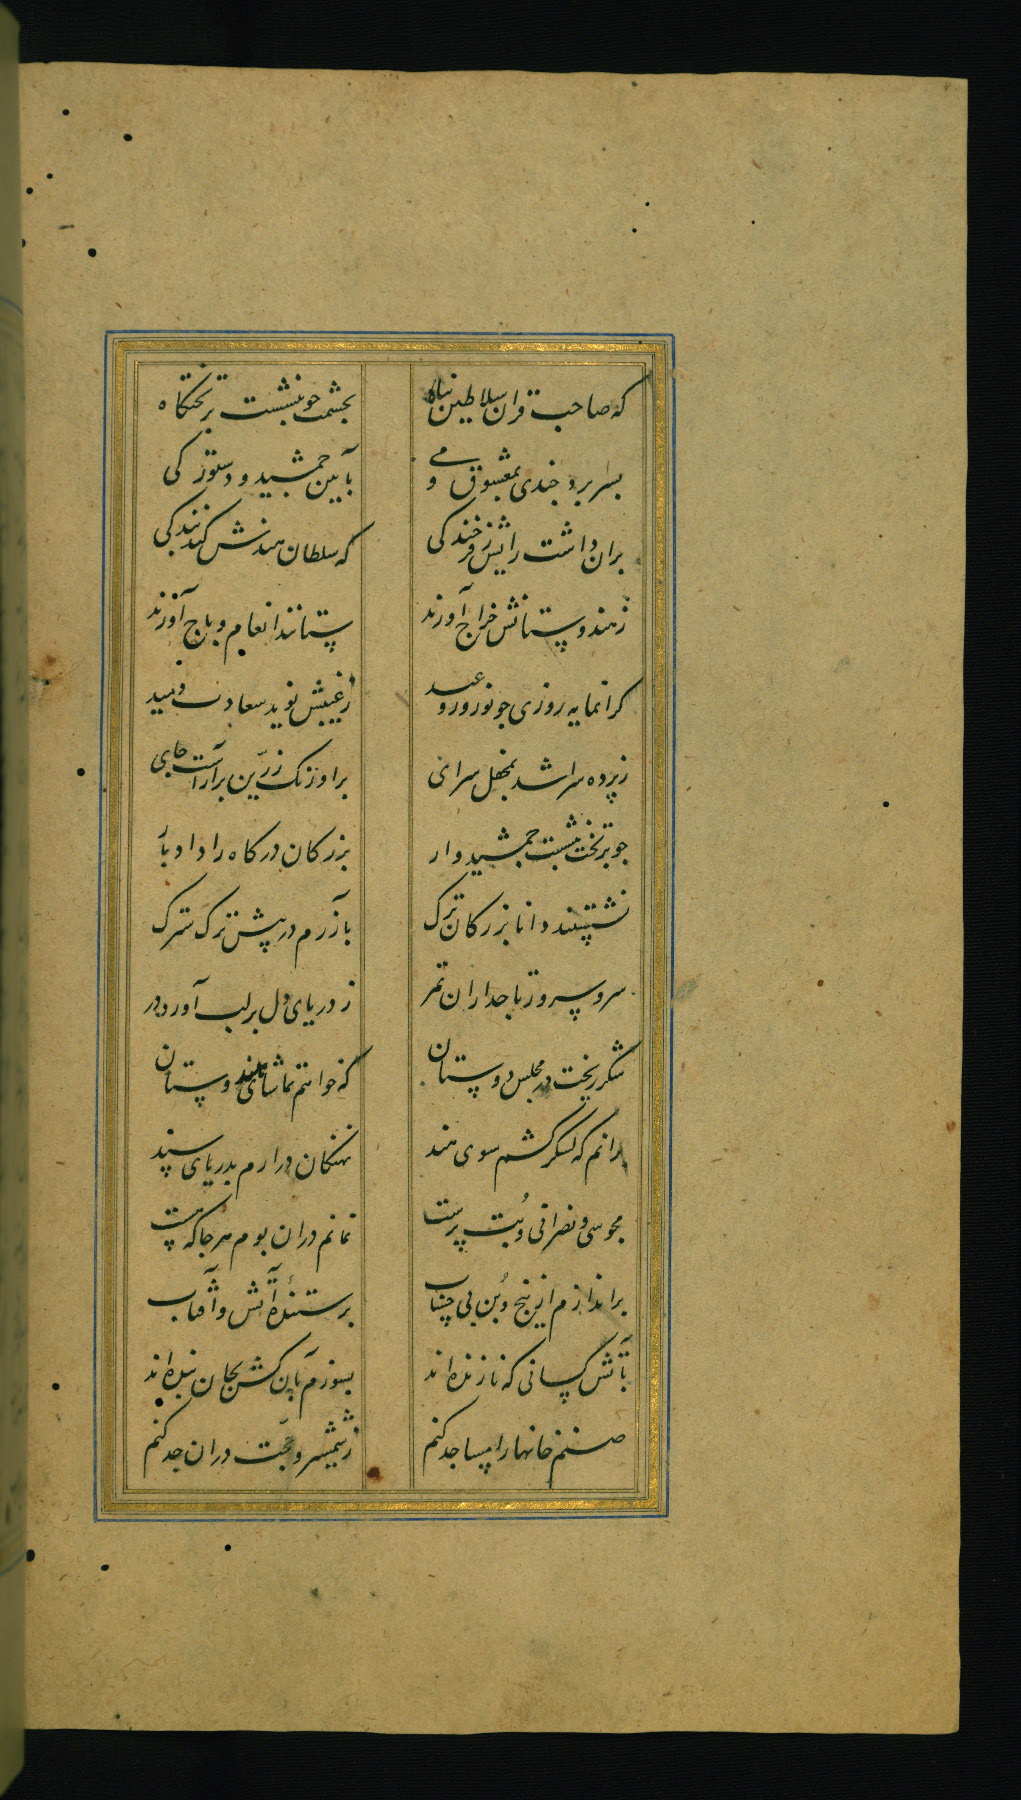 که صاحب قران سلاطین پناه بحشمت چو بنشست بر تختگاه
بسر برد چندی بمعشوق و می بآیین جمشید و دستور کی
بران داشت رایش ز فرخندگی که سلطان هندش کند بندگی
ز هندوستانش خراج آورند ستانند انعام و باج آورند
کرانمایه روزی چو نوروز و عید ز غیبش نوید سعادت رسید
ز پرده سرا شد بمحفل سرای بر اورنک زرین برآراست جای
چو بر تخت بنشست جمشیدوار بزرکان درکاه را داد بار
نشستند دانا بزرکان ترک بآزرم در پیش ترک سترک
سر و سرور تاجداران تمر ز دریای دل بر لب آورد در
شکر ریخت در مجلس دوستان که خواهم تماشای هندوستان
برانم که لشکر کشم سوی هند نهنکان درارم بدریای سند
مجوسی و نصرانی و بت پرست نمانم دران بوم هر جا که هست
براندازم از بیخ و بن بی حساب پرستندهٔ آتش و آفتاب
بآتش کسانی که نازنده‌اند بسوزم بآن کش بجان بنده‌اند
صنم خانها را مساجد کنم ز شمشیر و حجت دران جد کنم